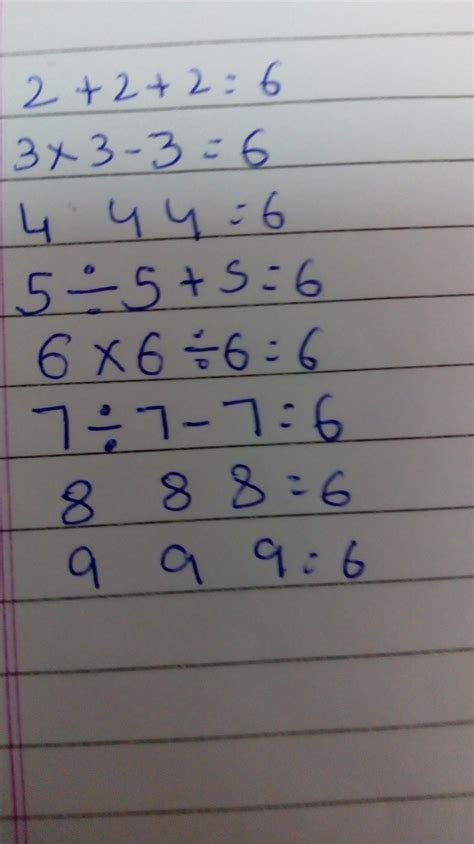 2 + 2 + 2 = 6
3 × 3 - 3 = 6
4 4 4 = 6
5 ÷ 5 + 5 = 6
6 × 6 ÷ 6 = 6
7 ÷ 7 - 7 = 6
8 8 8 = 6
9 9 9 = 6